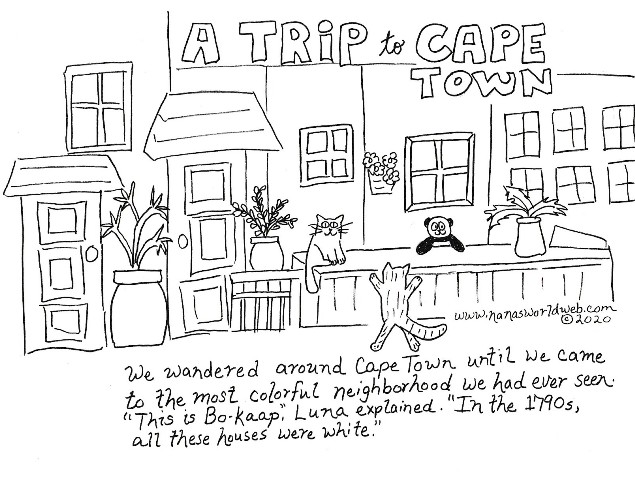 A TRIP to CAPE
TOWN
www.nanasworldweb.com
©2020
We wandered around Cape Town until we came
to the most colorful neighborhood we had ever seen.
"This is Bo-Kaap," Luna explained. "In the 1790s,
all these houses were white."